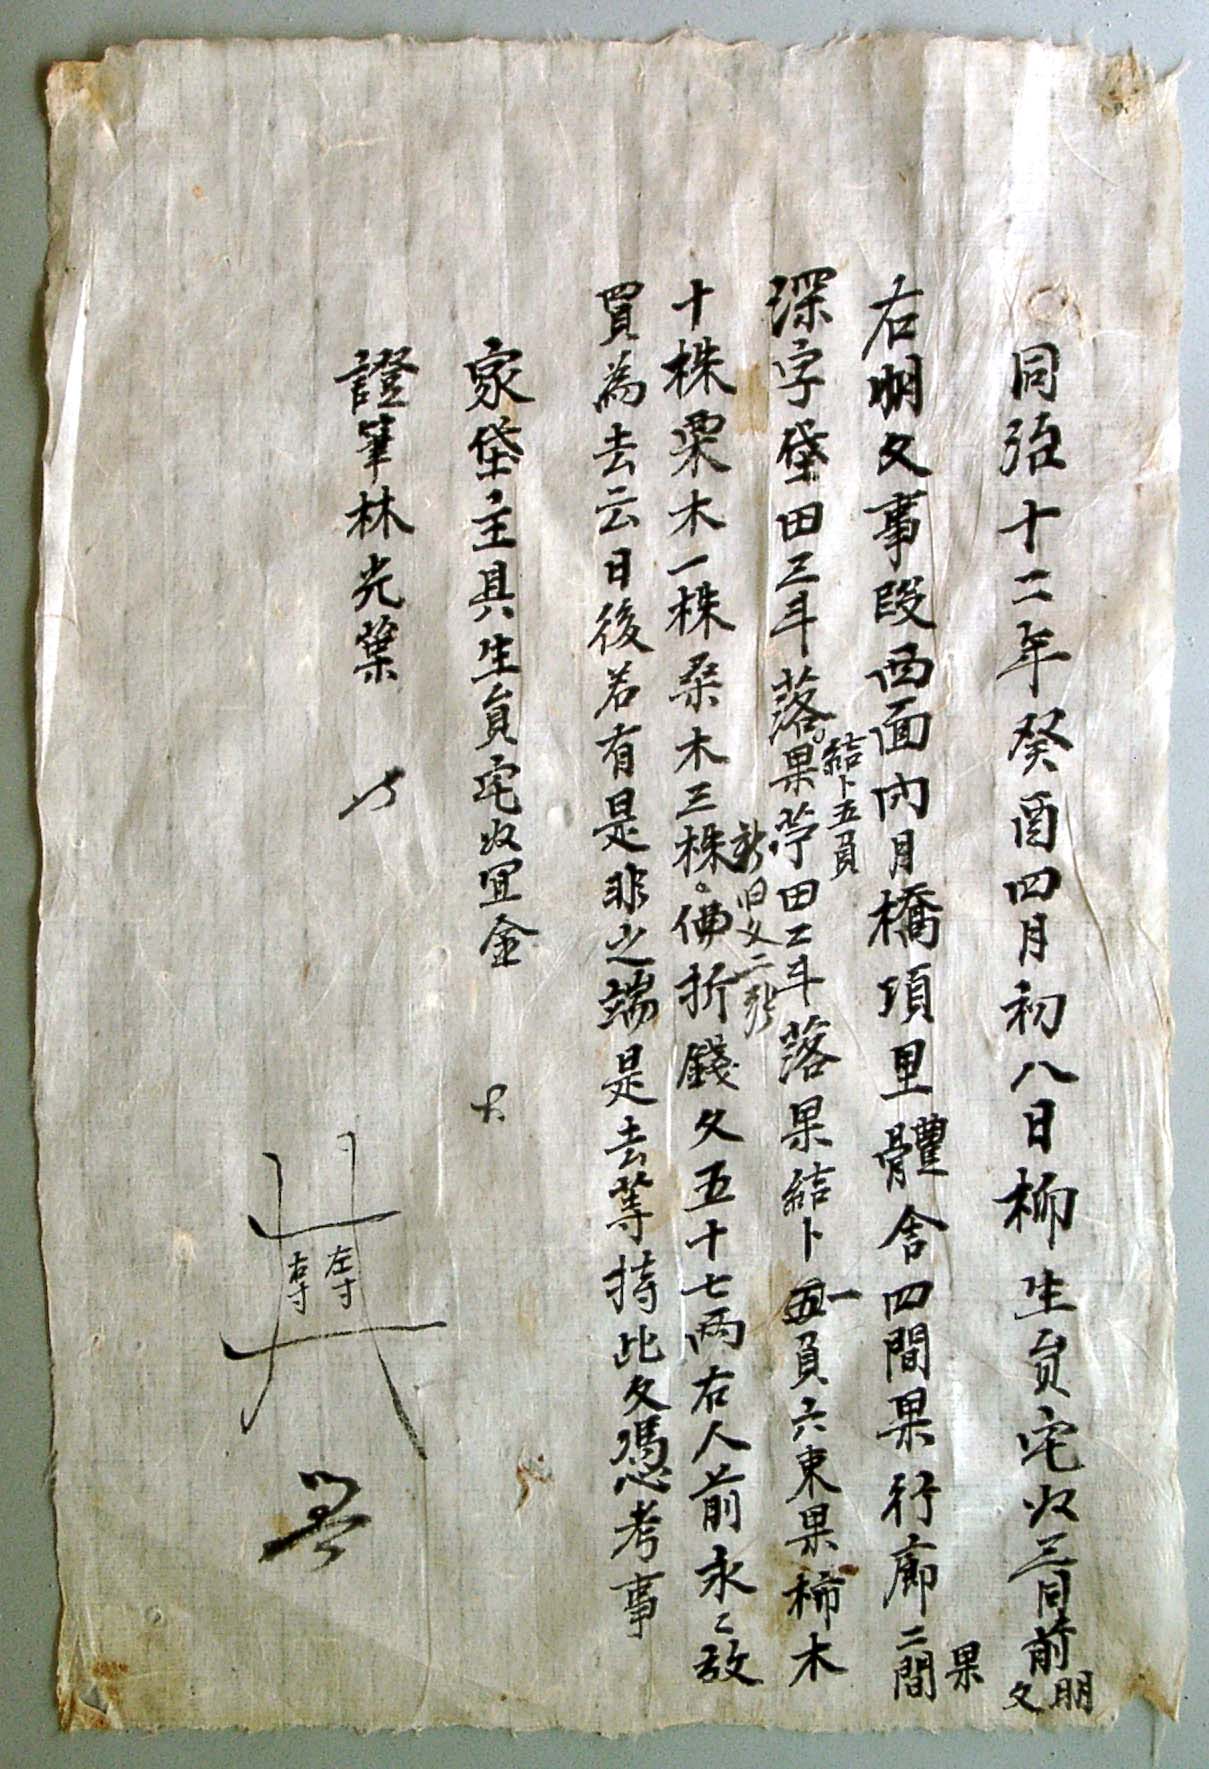 同治十二年癸酉四月初八日柳生員宅奴三同前明文
右明文事段西面內月橋項里體舍四間果行廊二間果
深字垈田三斗落果苧田二斗落果結卜一負六束果柿木
結卜五負
十株栗木一株桑木三株佛折錢文五十七兩右人前永〻放
新旧文二張
買為去云日後若有是非之端是去等持此文憑考事
家垈主具生員宅奴宜金
證筆林光葉
左寸
右寸